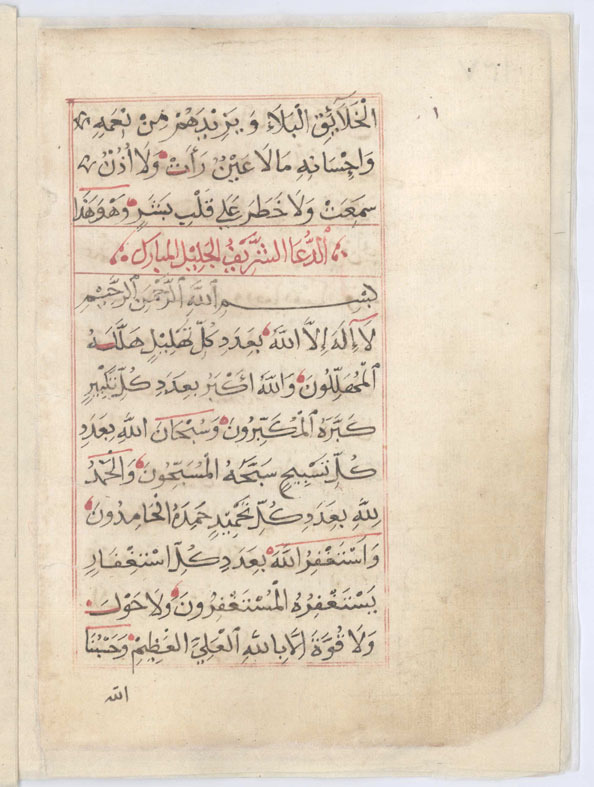 ١
الْخَلَآئِقِ الْبَلَاءَ وَيَزِيدَهُمْ مِنْ نِعَمِهِ
وَاِحْسَانِهِ مَالَا عَيْنٌ رَأَتْ وَلَا اُذُنٌ
سَمِعَتْ وَلَا خَطَرَ عَلَى قَلْبِ بَشَرٍ وَهُوَ هَذَا
الدُّعَا الشَّرِيفُ الجَلِيلُ المُبَارَك
بِسْمِ اللهِ الرَّحْمَنِ الرَّحِيمِ
لَآ اِلَهَ اِلَّا اللهُ بِعَدَدِ كُلِّ تَهْلِيلٍ هَلَّلَهُ
الْمُهَلِّلُونَ وَاللهُ اَكْبَرُ بِعَدَدِ كُلِّ تَكْبِيرٍ
كَبَّرَهُ الْمُكَبِّرُونَ وَسُبْحَانَ اللهِ بِعَدَدِ
كُلِّ تَسْبِيحٍ سَبَّحَهُ الْمُسَبِّحُونَ وَالْحَمْدُ
لِلَّهِ بِعَدَدِ كُلِّ تَحْمِيدٍ حَمِدَهُ الْحَامِدُونَ
وَاَسْتَغْفِرُ اللهَ بِعَدَدِ كُلِّ اسْتِغْفَارٍ
يَسْتَغْفِرُهُ الْمُسْتَغْفِرُونَ وَلَا حَوْلَ
وَلَا قُوَّةَ اِلَّا بِاللهِ الْعَلِيِّ الْعَظِيْمِ وَحَسْبُنَا
الله